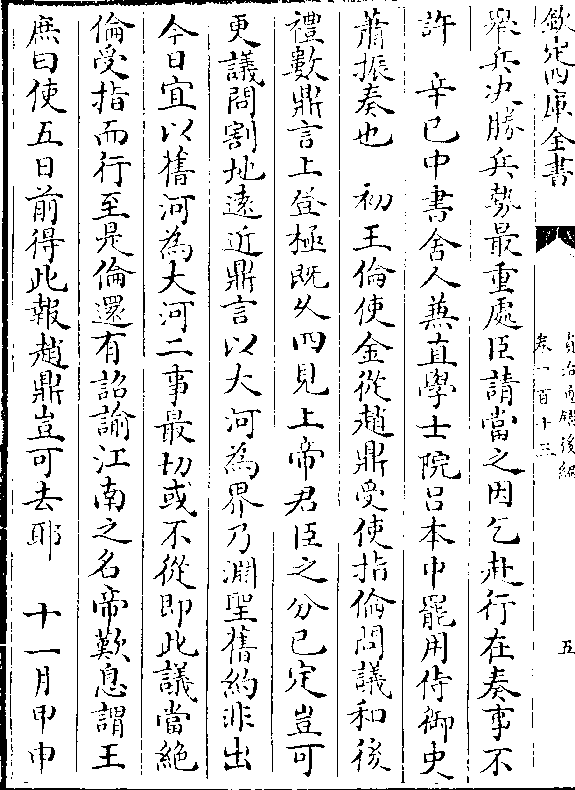 欽定四庫全書
資治通鑑後編
卷一百十三
五
舉兵決勝兵勢最重處臣請當之因乞赴行在奏事不
許　辛巳中書舍人兼直學士院呂本中罷用侍御史
蕭振奏也　初王倫使金從趙鼎受使指倫問議和後
禮數鼎言上登極既久四見上帝君臣之分已定豈可
更議問割地遠近鼎言以大河為界乃淵聖舊約非出
今日宜以舊河為大河二事最切或不從即此議當絕
倫受指而行至是倫還有詔諭江南之名帝歎息謂王
庶曰使五日前得此報趙鼎豈可去耶　十一月甲申